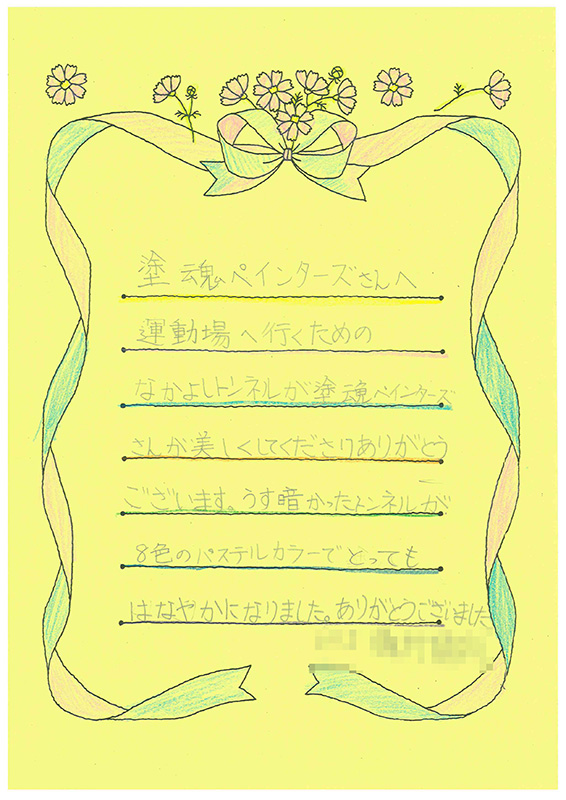 塗魂ペインターズさんへ
運動場へ行くための
なかよしトンネルが塗魂ペインターズ
さんが美しくしてくださりありがとう
ございます。うす暗かったトンネルが
8色のパステルカラーでとっても
はなやかになりました。ありがとうございました